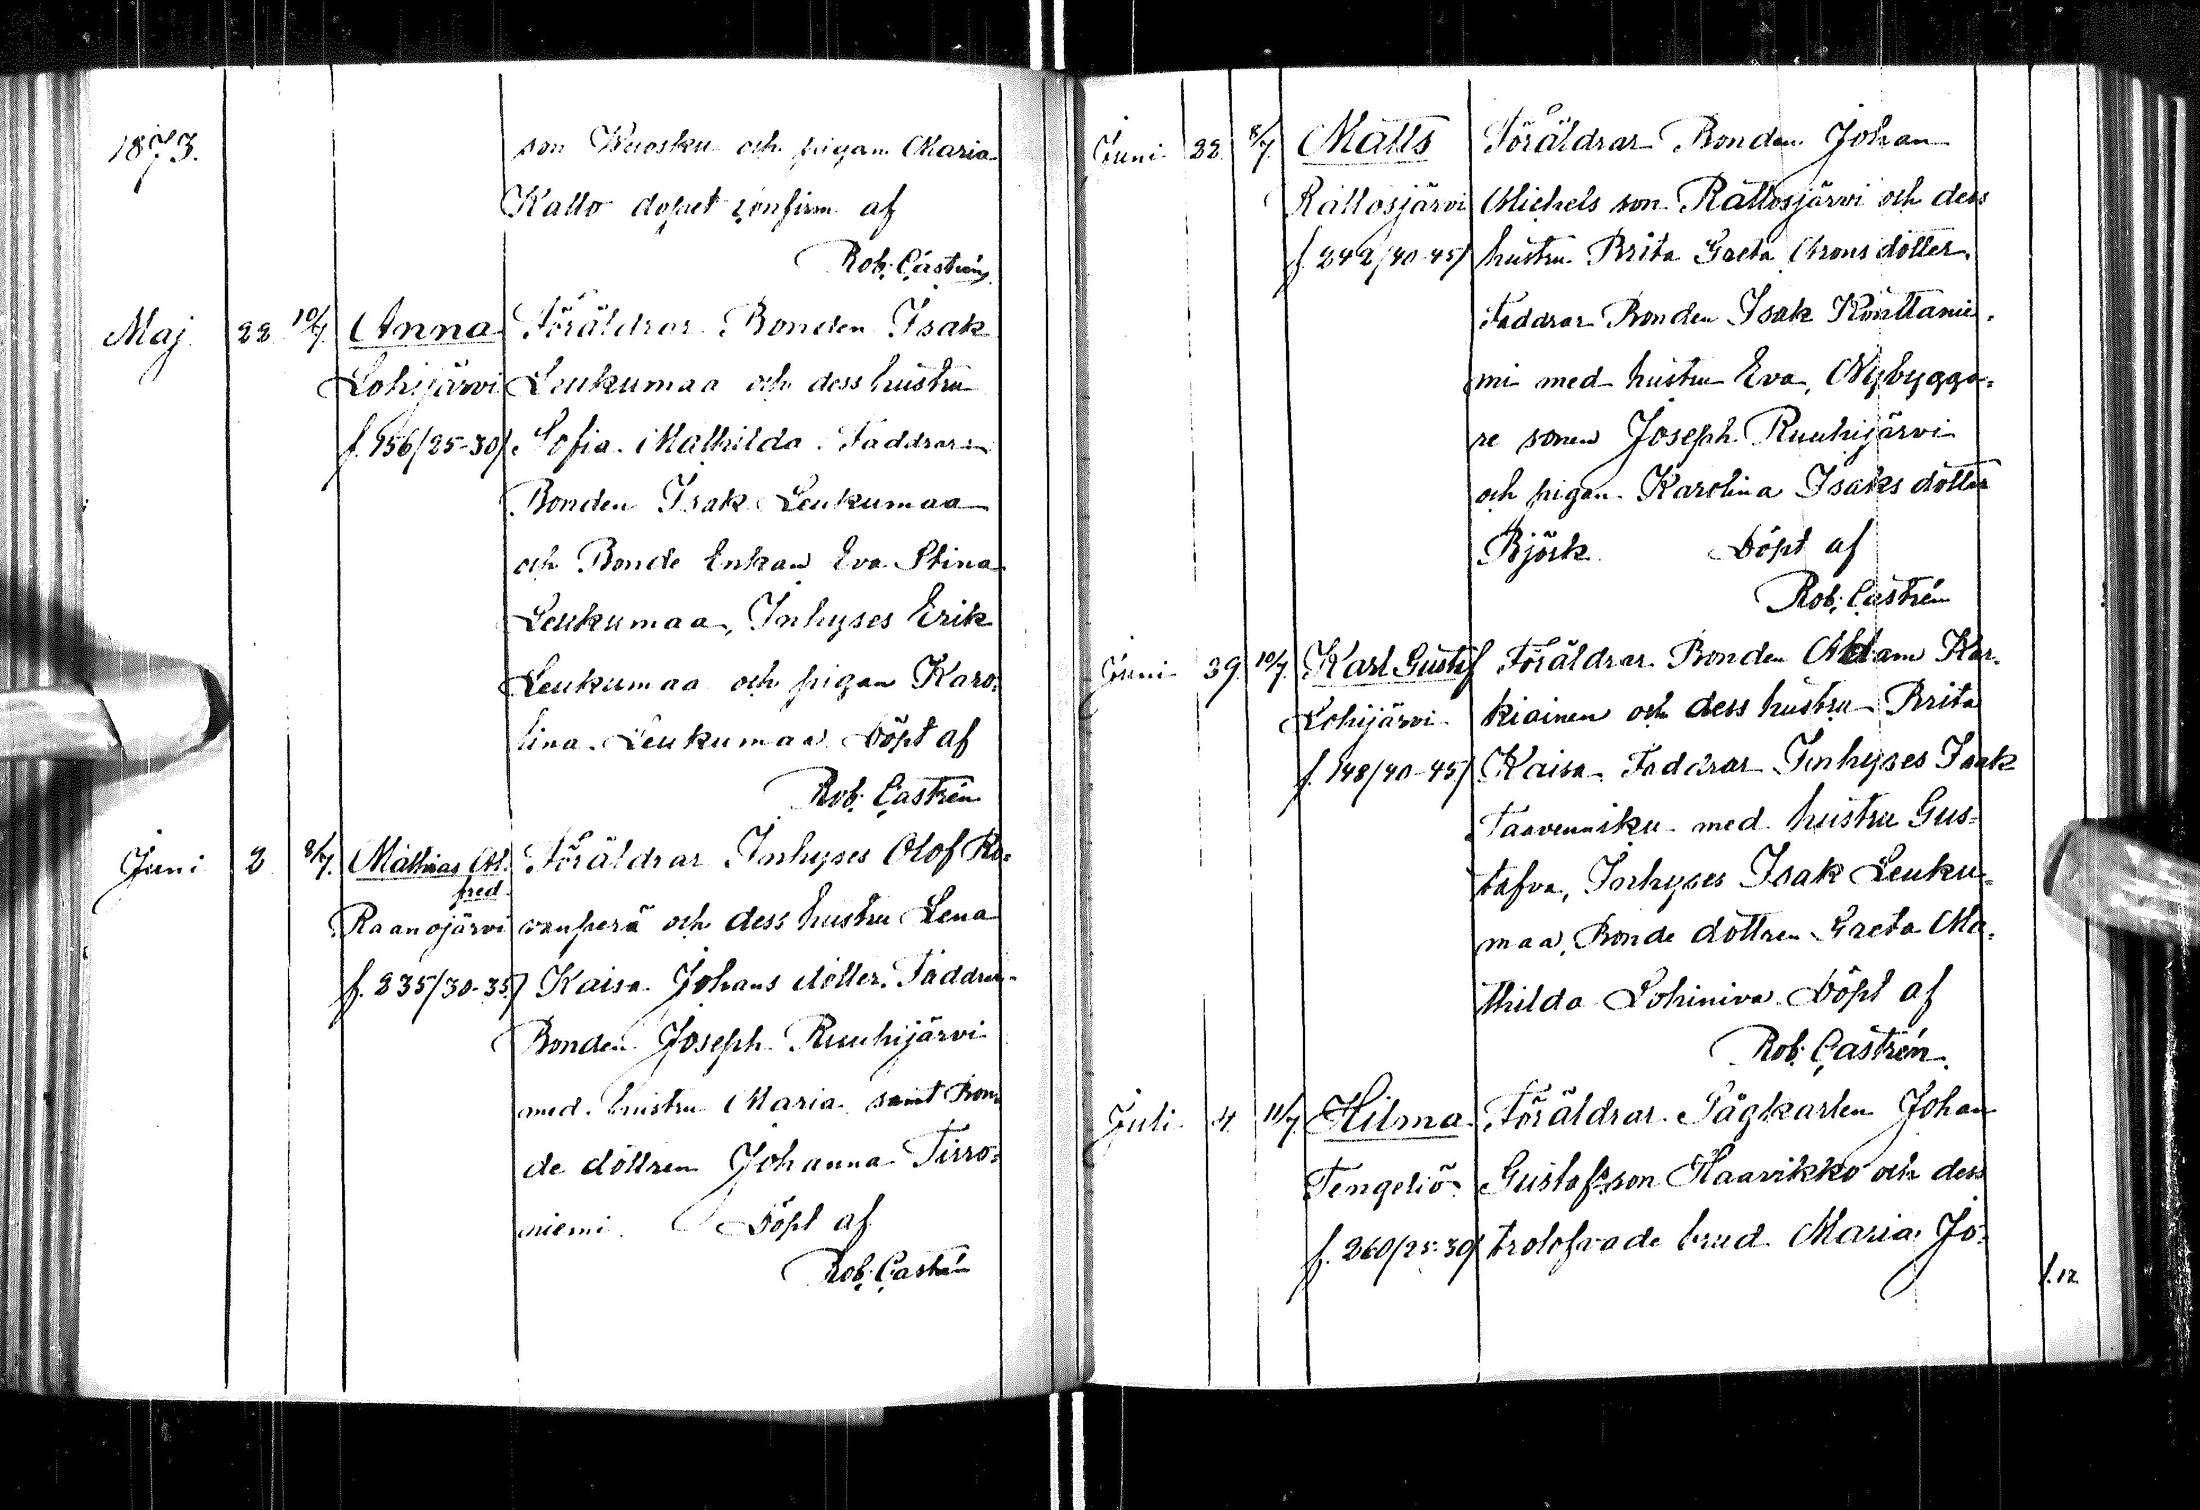 1873.
son Kuosku och pigan Maria
Kallo dopet confirm af
Rob. Castrén
Maj 22 10/7. Anna Föräldrar Bonden Isak
Lohijärvi Leukumaa och dess hustru
f. 156/25-30/ Sofia Mathilda. Faddrar
Bonden Isak Leukumaa
och Bonde Enkan Eva Stina
Leukumaa, Inhyses Erik
Leukumaa och pigan Karo-
lina Leukumaa Döpt af
Rob. Castrén
Juni 2 8/7. Mathias Al- Föräldrar Inhyses Olof Ro-
fred
Raanojärvi vanperä och dess hustru Lena
f. 235/30-35/ Kaisa Johans dotter. Faddrar
Bonden Joseph Ruuhijärvi
med hustru Maria samt Bon-
de dottren Johanna Tirro-
niemi. Döpt af
Rob. Castrén
Juni 22 8/7. Matts Föräldrar Bonden Johan
Rattosjärvi Michels son Rattosjärvi och dess
f. 242/40-45/ hustru Brita Greta Arons dotter.
Faddrar Bonden Isak Konttanie-
mi med hustru Eva, Nybygga-
re sonen Joseph Ruuhijärvi
och pigan Karolina Isaks dotter
Björk Döpt af
Rob. Castrén
Juni 29 10/7. Karl Gustaf Föräldrar Bonden Adam Kar-
Lohijärvi kiainen och dess hustru Brita
f. 148/40-45/ Kaisa Faddrar Inhyses Isak
Taavenniku med hustru Gus-
tafva, Inhyses Isak Leuku-
maa, Bonde dottren Greta Ma-
thilda Lohiniva Döpt af
Rob. Castrén.
Juli 4 11/7. Hilma Föräldrar Sågkarlen Johan
Tengeliö Gustafsson Haavikko och dess
f. 260/25-30/ trolofvade brud Maria Jo-
f. 12